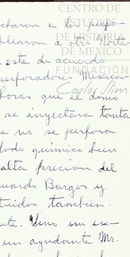 CENTRO DE
ESTUDIOS
DE HISTORIA
DE MEXICO
FUNDACIÓN
Carlos Slim
charon a los
plearon d otra
este de acuerdo
perforadores Mexicanos
horas que el domo
se inyectara tanta
e no se perforan
lodo químico bien
alta precision del
uardo Burges y
tuidos tambien
ute. Vino un ex-
un ayudante Mr.